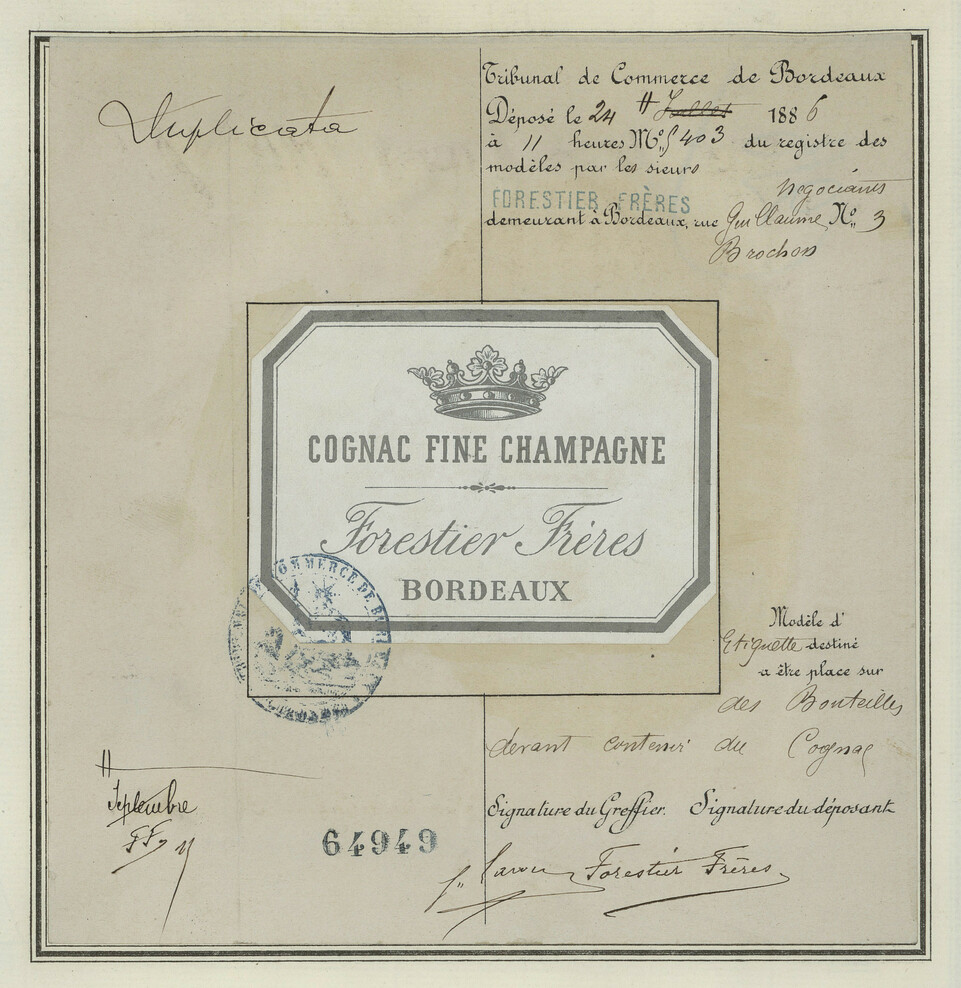 Duplicata
Tribunal de Commerce de Bordeaux
Déposé le 24 # Juillet 1886
à 11 heures Nº 5403 du registre des
modèles par les sieurs
FORESTIER FRÈRES négociants
demeurant à Bordeaux, rue Guillaume Nº 3
Brochon
COGNAC FINE CHAMPAGNE
Forestier Frères
BORDEAUX
COMMERCE DE
Modèle d'
Etiquette destiné
a être place sur
des Bouteilles
devant contenir du Cognac
#
Septembre
FF
Signature du Greffier. Signature du déposant
64949
Forestier Frères